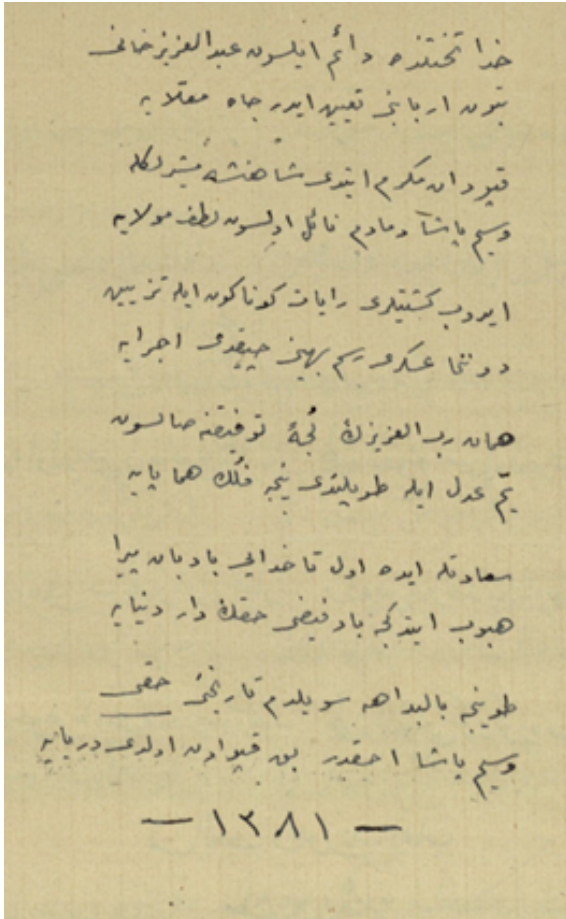 خدا تختنده دائم ایلسون عبدالعزیز خانی
بتون اربابنی تعیین ایدر جاه معلایه
قپودان مکرم ایتدی شاهنشه مشیرلکله
وسیم پاشا دمادم نائل اولسون لطف مولایه
ایدوب کشتیلری رایات کوناکون ایله تزیین
دوننما عسکری رسم بهینی چیقدی اجرایه
همان رب العزیزك لجهٔ توفیقنه صالسون
یم عدل ایله طوپلندی نیجه فلك هماپایه
سعادتله ایده اول ناخدایی بادبان پیرا
هبوب ایتدکجه باد فیضی حقك دار دنیایه
طوینجه بالبداهه سویلدم تاریخنی حقی
وسیم پاشا احقدر بو قپودان اولدی دریایه
— ١٢٨١ —